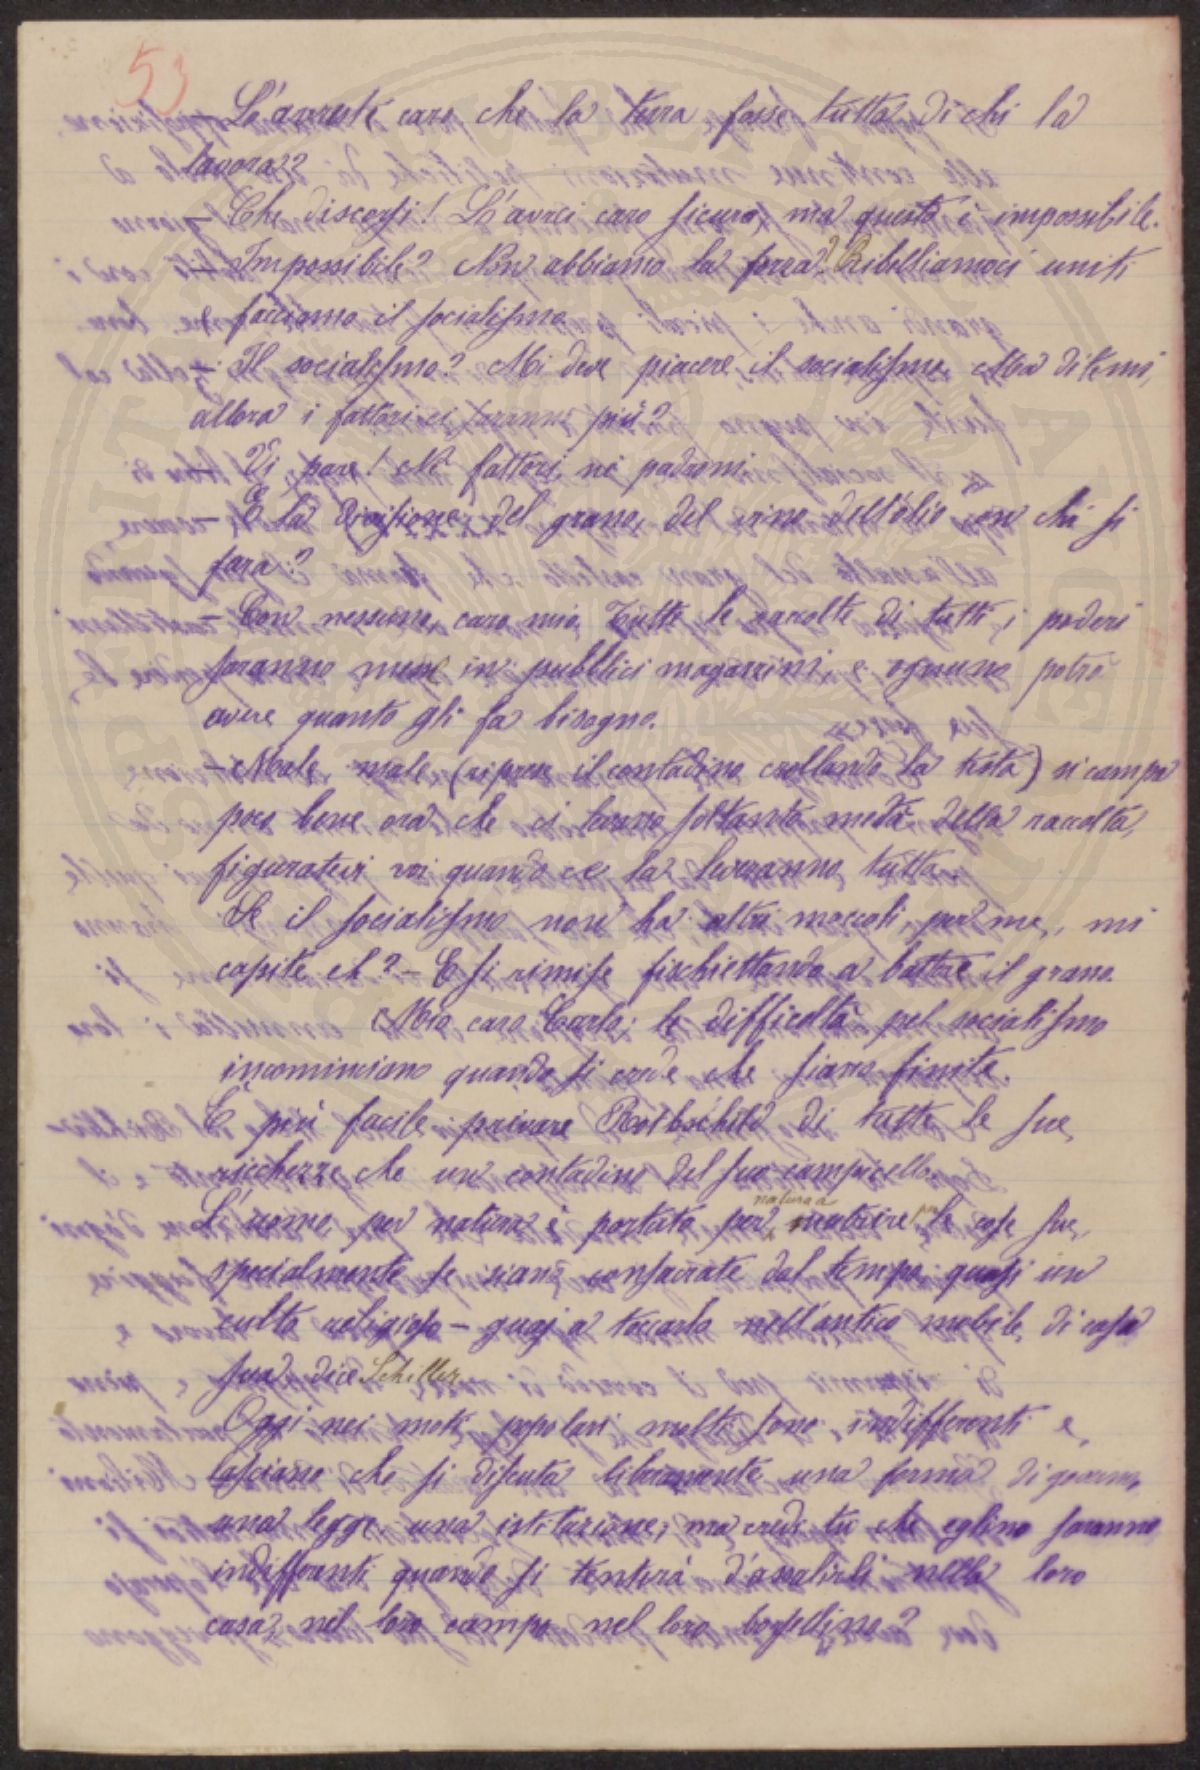 53
- L'avreste caro che la terra fosse tutta di chi la
lavora?
- Che discorsi! L'avrei caro sicuro, ma questo è impossibile.
- Impossibile? Non abbiamo la forza? Ribelliamoci uniti
e facciamo il socialismo
- Il socialismo? Mi deve piacere il socialismo. Ma ditemi,
allora i fattori ci saranno più?
- Vi pare! Nè fattori, nè padroni.
- E la divisione del grano, del vino dell'olio con chi si
farà?
- Con nessuno, caro mio. Tutte le raccolte di tutti i poderi
saranno messe in pubblici magazzini, e ognuno potrà
avere quanto gli fa bisogno.
- Male, male (riprese il contadino crollando la testa) si campa
poco bene ora che ci levano soltanto metà della raccolta,
figuratevi voi quando ce la leveranno tutta.
Se il socialismo non ha altri moccoli, per me, mi
capite eh? - E si rimise fischiettando a battere il grano.
Mio caro Carlo, le difficoltà pel socialismo
incominciano quando si crede che siano finite.
È più facile privare Rothschild di tutte le sue
ricchezze che un contadino del suo campicello.
natura a
L'uomo per natura è portato per nutrire le cose sue,
specialmente se siano consacrate dal tempo, quasi un
culto religioso - guai a toccarlo nell'antico mobile di casa
sua dice Schiller
Oggi nei moti popolari molti sono indifferenti e
lasciano che si discuta liberamente una forma di governo,
una legge, una istituzione; ma credi tu che eglino saranno
indifferenti quando si tenterà d'assalirli nella loro
casa, nel loro campo, nel loro borsellino?